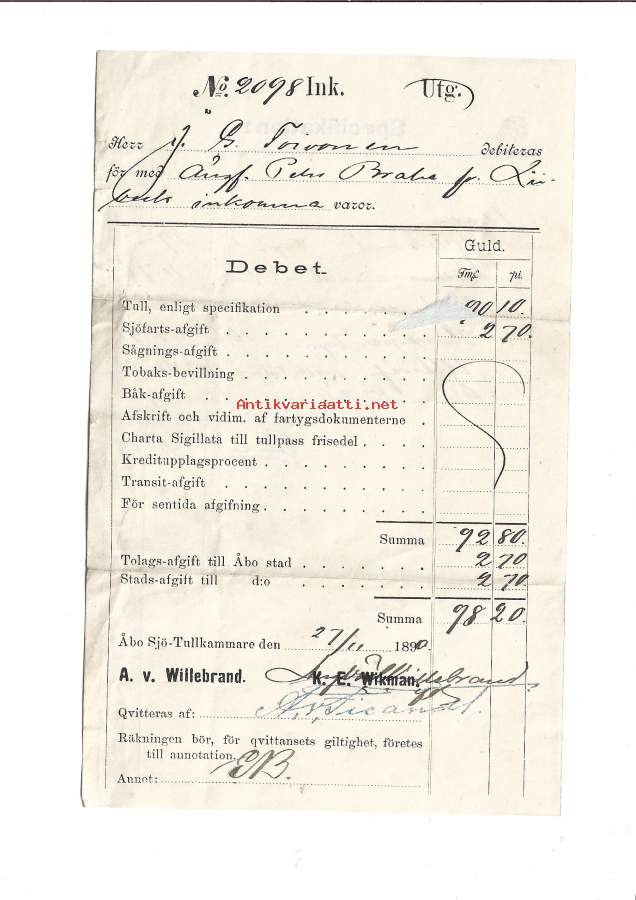 No. 2098 Ink. Utg.
Herr J. G. Toivonen debiteras
för med Ångf. Pehr Brahe fr. Lü-
beck inkomna varor.
Guld.
Debet.
Fmf. pi.
Tull, enligt specifikation . . . . . 90 10.
Sjöfarts-afgift . . . . . . . . . 2 70.
Sågnings-afgift . . . . . . . . .
Tobaks-bevillning . . . . . . . .
Båk-afgift . . . . . . . . . .
Antikvariaatti.net
Afskrift och vidim. af fartygsdokumenterne .
Charta Sigillata till tullpass frisedel . . . .
Kreditupplagsprocent . . . . . . .
Transit-afgift . . . . . . . . .
För sentida afgifning . . . . . . .
Summa 92 80.
Tolags-afgift till Åbo stad . . . . . . 2 70
Stads-afgift till d:o . . . . . . 2 70.
Summa 98 20.
Åbo Sjö-Tullkammare den 27/11 1890.
A. v. Willebrand. K. E. Wikman.
Qvitteras af:
Räkningen bör, för qvittansets giltighet, företes
till annotation.
Annot: EB.